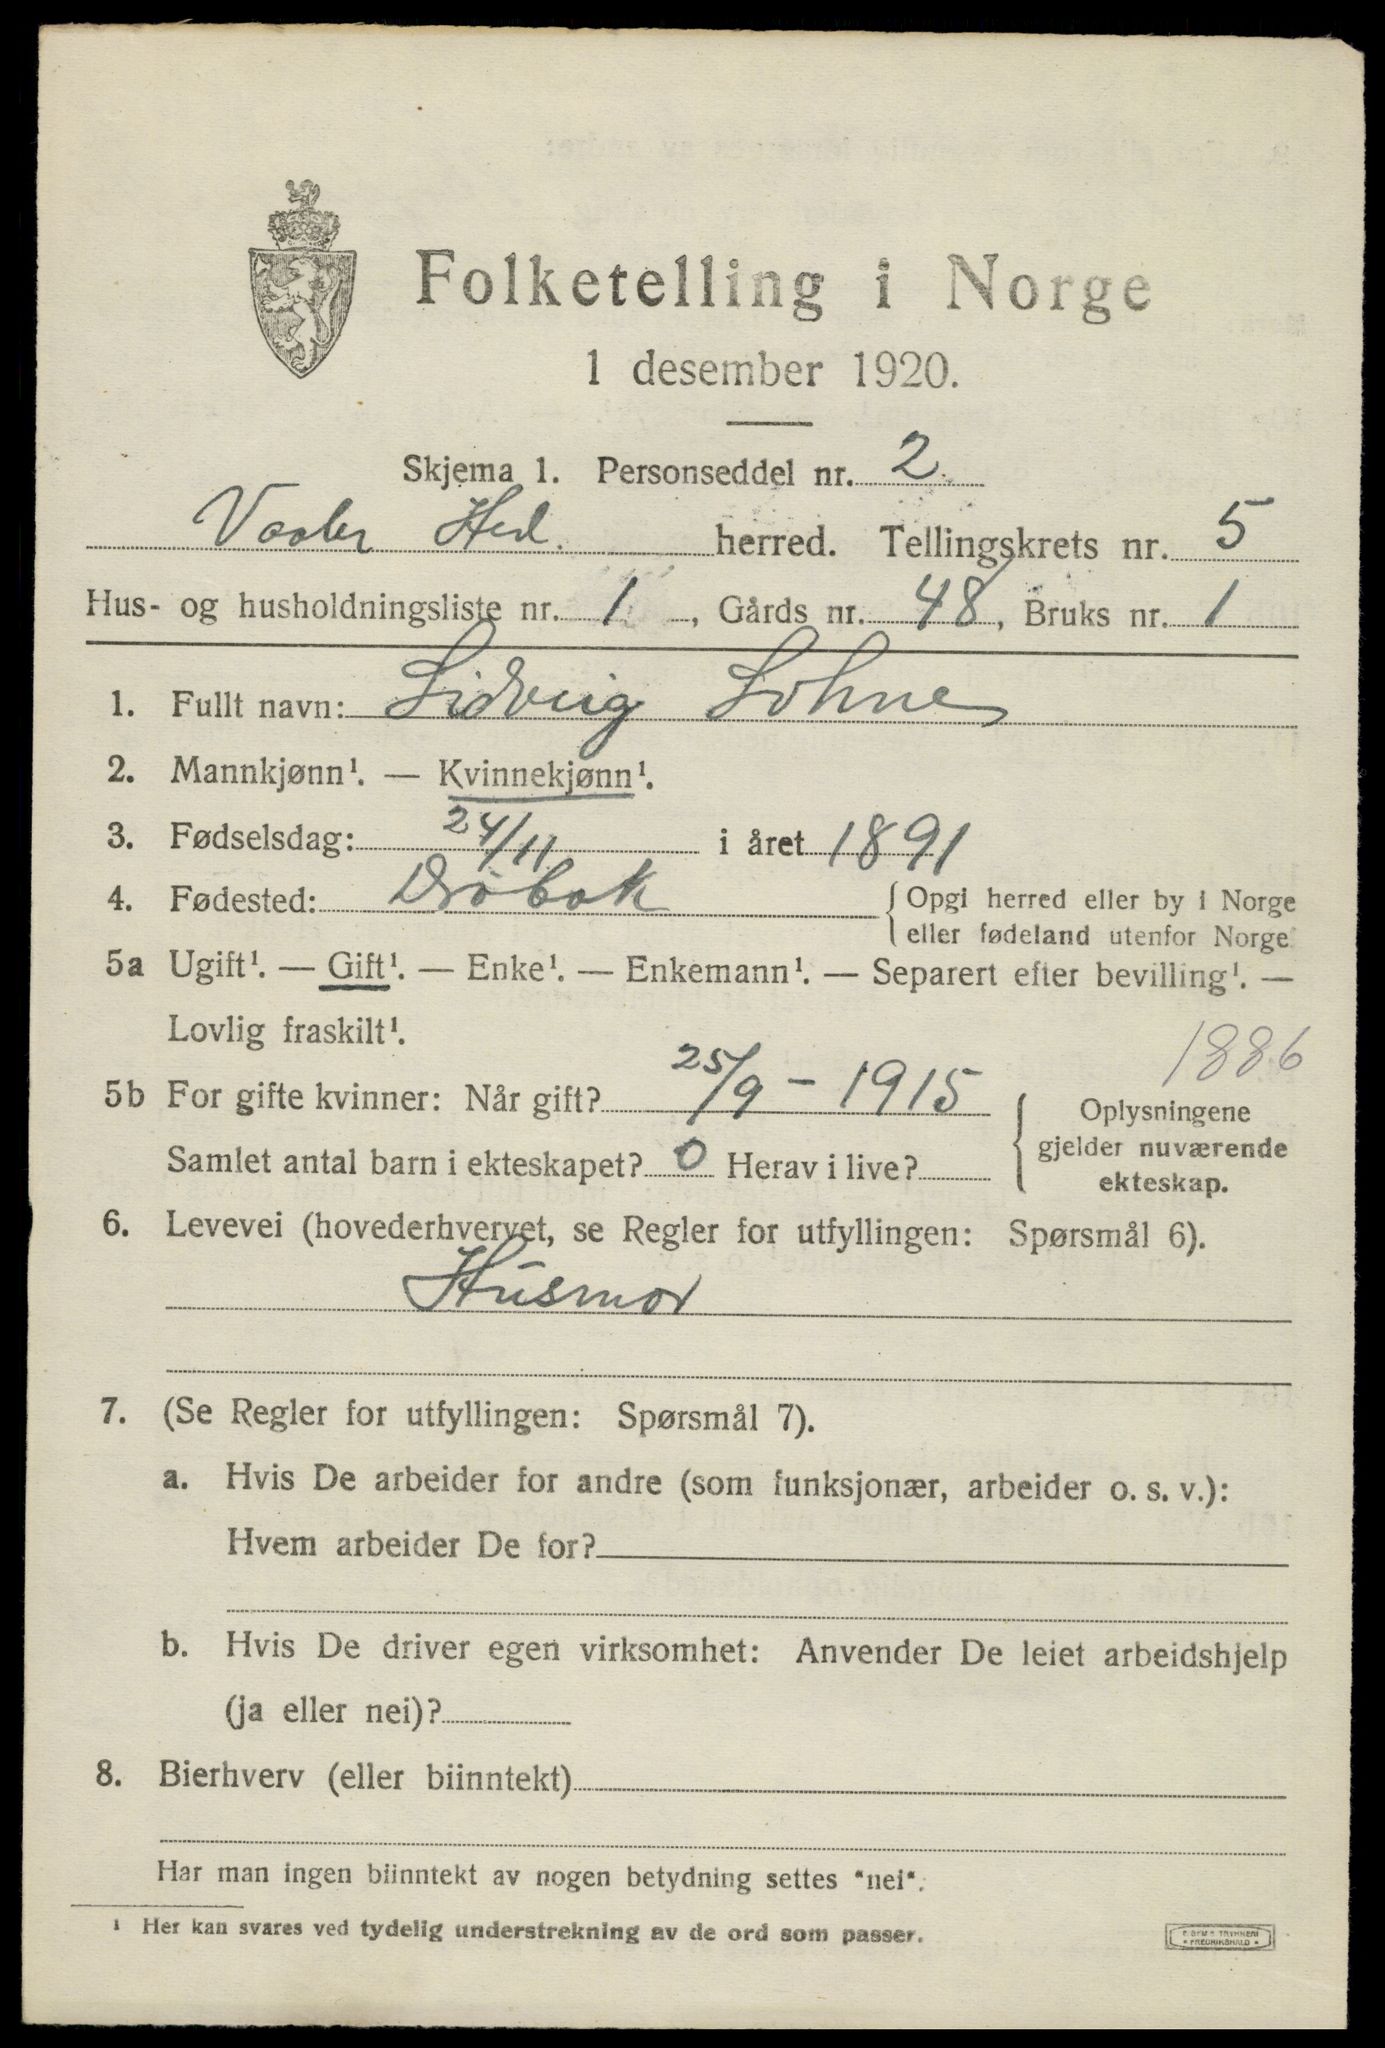 Folketelling i Norge
1 desember 1920.
Skjema 1. Personseddel nr. 2
Vaaler Hed. herred. Tellingskrets nr. 5
Hus- og husholdningsliste nr. 1, Gårds nr. 48, Bruks nr. 1
1. Fullt navn: Sidveig Lohne
2. Mannkjønn¹. — Kvinnekjønn¹.
3. Fødselsdag: 24/11 i året 1891
4. Fødested: Drøbak {Opgi herred eller by i Norge
eller fødeland utenfor Norge
5a Ugift¹. — Gift¹. — Enke¹. — Enkemann¹. — Separert efter bevilling¹. —
Lovlig fraskilt¹.
1886
5b For gifte kvinner: Når gift? 25/9 - 1915 { Oplysningene
gjelder nuværende
Samlet antal barn i ekteskapet? 0 Herav i live?
ekteskap.
6. Levevei (hovederhvervet, se Regler for utfyllingen: Spørsmål 6).
Husmor
7. (Se Regler for utfyllingen: Spørsmål 7).
a. Hvis De arbeider for andre (som funksjonær, arbeider o. s. v.):
Hvem arbeider De for?
b. Hvis De driver egen virksomhet: Anvender De leiet arbeidshjelp
(ja eller nei)?
8. Bierhverv (eller biinntekt)
Har man ingen biinntekt av nogen betydning settes "nei".
¹ Her kan svares ved tydelig understrekning av de ord som passer.
TRYKKERI
FREDRIKSHALD